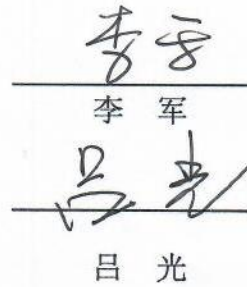 李军
李 军
吕光
吕 光